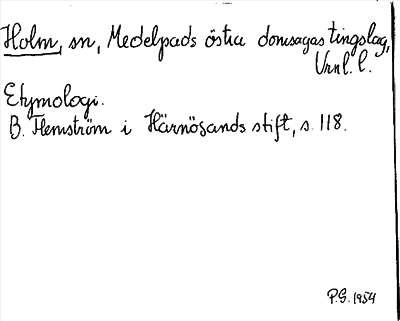 Holm, sn, Medelpads östra domsagas tingslag,
Vrnl. l.
Etymologi.
B. Flemström i Härnösands stift, s. 118.
P.G. 1954